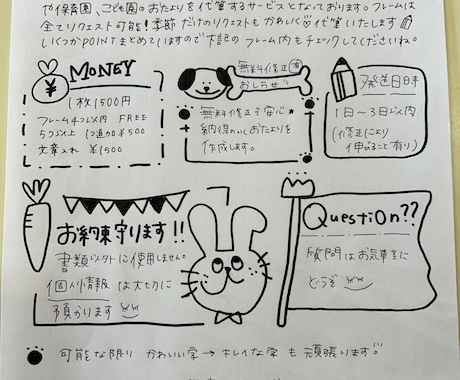 や保育園、こども園のおたよりを代筆するサービスとなっております。フレームは
全てリクエスト可能！季節だけのリクエストもかわいく代筆いたします
いくつかPOINTまとめていますので下記のフレーム内もチェックしてくださいね。
MONEY
1枚1500円
フレーム4つ以内 FREE
5つ以上 1つ追加¥500
文章入れ ¥1500
無料修正有
おしらせ
無料修正で安心
納得のいくおたよりを
作成します。
発送日時
1日〜3日以内
(修正により
伸びること有り)
お約束守ります!!
書類以外に使用しません。
個人情報は大切に
預かります
Question??
質問はお気軽に
どうぞ
可能な限り かわいい字→キレイな字も頑張ります